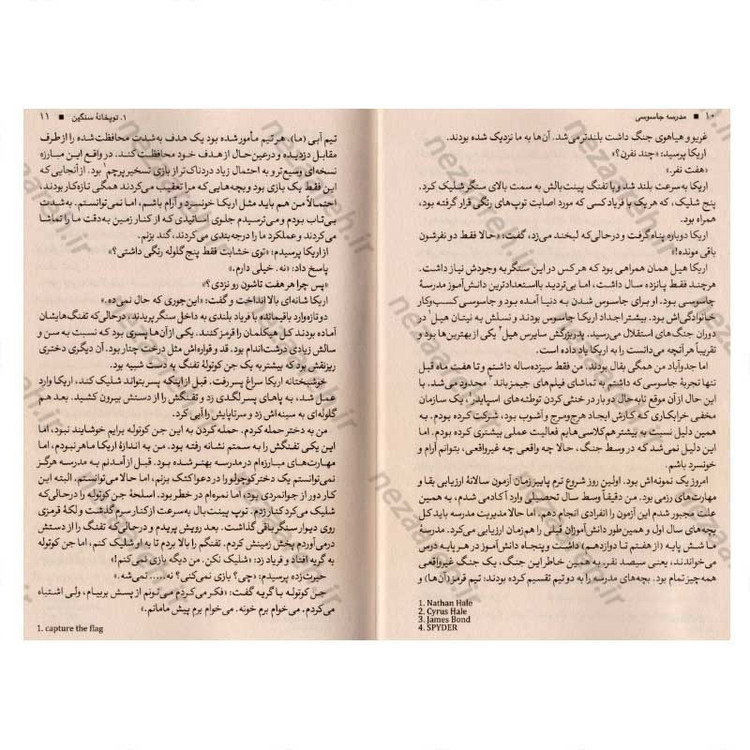 ۱۰ ■ مدرسه جاسوسی
غریو و هیاهوی جنگ داشت بلندتر می‌شد. آن‌ها به ما نزدیک شده بودند.
اریکا پرسید: «چند نفرن؟»
«هفت نفر.»
اریکا به سرعت بلند شد و با تفنگ پینت‌بالش به سمت بالای سنگر شلیک کرد.
پنج شلیک، که هر یک با فریاد کسی که مورد اصابت توپ‌های رنگی قرار گرفته بود،
همراه بود.
اریکا دوباره پناه گرفت و درحالی‌که لبخند می‌زد، گفت: «حالا فقط دو نفرشون
باقی مونده!»
اریکا هیل همان همراهی بود که هر کس در این سنگر به وجودش نیاز داشت.
هرچند فقط پانزده سال داشت، اما بی‌تردید بااستعدادترین دانش‌آموز مدرسهٔ
جاسوسی بود. او برای جاسوس شدن به دنیا آمده بود و جاسوسی کسب‌وکار
خانوادگی‌اش بود. بیشتر اجداد اریکا جاسوس بودند و نسلش به نیتان هیل۱ در
دوران جنگ‌های استقلال می‌رسید. پدربزرگش سایرس هیل۲ یکی از بهترین‌ها بود و
تقریباً هر آنچه می‌دانست را به اریکا یاد داده است.
اما جدوآباد من همگی بقال بودند. من فقط سیزده‌ساله داشتم و تا هفت ماه قبل
تنها تجربهٔ جاسوسی که داشتم به تماشای فیلم‌های جیمزباند۳ محدود می‌شد. با
این حال از آن موقع تابه‌حال دو بار در خنثی کردن توطئه‌های اسپایدر۴، یک سازمان
مخفی خرابکاری که کارش ایجاد هرج‌ومرج و آشوب بود، شرکت کرده بودم. به
همین دلیل نسبت به بیشتر هم‌کلاسی‌هایم فعالیت عملی بیشتری کرده بودم. اما
این دلیل نمی‌شد که در وسط جنگ، حالا چه واقعی چه غیرواقعی، بتوانم آرام و
خونسرد باشم.
امروز یک نمونه‌اش بود. اولین روز شروع ترم پاییز زمان آزمون سالانهٔ ارزیابی بقا و
مهارت‌های رزمی بود. من دقیقاً وسط سال تحصیلی وارد آکادمی شدم، به همین
علت مجبور شدم این آزمون را انفرادی انجام دهم. اما حالا مدیریت مدرسه باید کل
بچه‌های سال اول و همین‌طور دانش‌آموزان قبلی را هم‌زمان ارزیابی می‌کرد. مدرسهٔ
ما شش پایه (از هفتم تا دوازدهم) داشت و پنجاه دانش‌آموز در هر پایه درس
می‌خواندند، یعنی سیصد نفر. به همین خاطر این جنگ، یک جنگ غیرواقعی
همه‌چیز تمام بود. بچه‌های مدرسه را به دو تیم تقسیم کرده بودند: تیم قرمز (آن‌ها) و
1. Nathan Hale
2. Cyrus Hale
3. James Bond
4. SPYDER
۱. توپخانهٔ سنگون ■ ۱۱
تیم آبی (ما). هر تیم مأمور شده بود یک هدف به‌شدت محافظت‌شده را از طرف
مقابل دزدیده و درعین‌حال از هدف خود محافظت کند. در واقع این مبارزه
نسخه‌ای وسیع‌تر و به احتمال زیاد دردناک‌تر از بازی تسخیر پرچم۱ بود. از آنجایی که
این فقط یک بازی بود و بچه‌هایی که مرا تعقیب می‌کردند همگی تازه‌کار بودند،
احتمالاً من هم باید مثل اریکا خونسرد و آرام باشم، اما نمی‌توانستم. به‌شدت
بی‌تاب بودم و می‌ترسیدم جلوی اساتیدی که از کنار زمین به‌دقت ما را تماشا
می‌کردند و عملکرد ما را درجه‌بندی می‌کردند، گند بزنم.
از اریکا پرسیدم: «توی خشابت فقط پنج گلوله رنگی داشتی؟»
پاسخ داد: «نه. خیلی دارم.»
«پس چرا هر هفت تاشون رو نزدی؟»
اریکا شانه‌ای بالا انداخت و گفت: «این‌جوری که حال نمی‌ده.»
دو تازه‌وارد باقیمانده با فریاد بلندی به داخل سنگر پریدند، درحالی‌که تفنگ‌هایشان
آماده بودند کل هیکلمان را قرمز کنند. یکی از آن‌ها پسری بود که نسبت به سن و
سالش زیادی درشت‌اندام بود. قد و قواره‌اش مثل درخت چنار بود. آن دیگری دختری
ریزنقش بود که بیشتر به یک جن کوتولهٔ تفنگ به دست شبیه بود.
خوشبختانه اریکا سراغ پسر رفت. قبل از اینکه پسر بتواند شلیک کند، اریکا وارد
عمل شد، به پاهای پسر لگدی زد و تفنگش را از دستش بیرون کشید. بعد هم
گلوله‌ای به سینه‌اش زد و سرتاپایش را آبی کرد.
من به دختر حمله کردم. حمله کردن به این جن کوتوله برایم خوشایند نبود، اما
این یکی تفنگش را به سمتم نشانه رفته بود. من به اندازهٔ اریکا ماهر نبودم، اما
مهارت‌های مبارزه‌ام در مدرسه بهتر شده بود. قبل از آمدنم به مدرسه هرگز
نمی‌توانستم یک دختر کوچولو را در دعوا کتک بزنم، اما حالا می‌توانستم. البته این
کار دور از جوانمردی بود، اما نمره‌ام در خطر بود. اسلحهٔ جن کوتوله را درحالی‌که
شلیک می‌کرد کنار زدم. توپ پینت‌بال به سرعت از کنار سرم گذشت و لکهٔ قرمزی
روی دیوار سنگر باقی گذاشت. بعد رویش پریدم و درحالی‌که تفنگ را از دستش
درمی‌آوردم پخش زمینش کردم. تفنگم را بالا بردم تا به او شلیک کنم، اما جن کوتوله
به گریه افتاد و فریاد زد: «شلیک نکن. من دیگه بازی نمی‌کنم!»
حیرت‌زده پرسیدم: «چی؟ بازی نمی‌کنی؟ نه..... نمی‌شه.»
جن کوتوله با گریه گفت: «فکر می‌کردم می‌تونم از پسش بربیام، ولی اشتباه
می‌کردم. می‌خوام برم خونه. می‌خوام برم پیش مامانم.»
1. capture the flag
nezaareh.ir